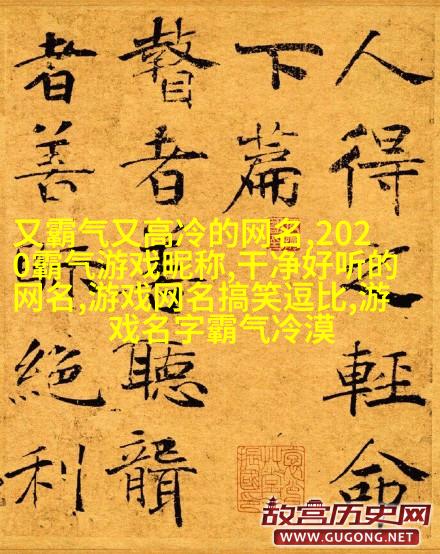 人得之輕命
下篇
瞽者聽聾
者善絕利
又霸气又高冷的网名,202
0霸气游戏昵称,干净好听的
网名,游戏网名搞笑逗比,游
戏名字霸气冷漠
故宫历史网
WWW.GUGONG.NET